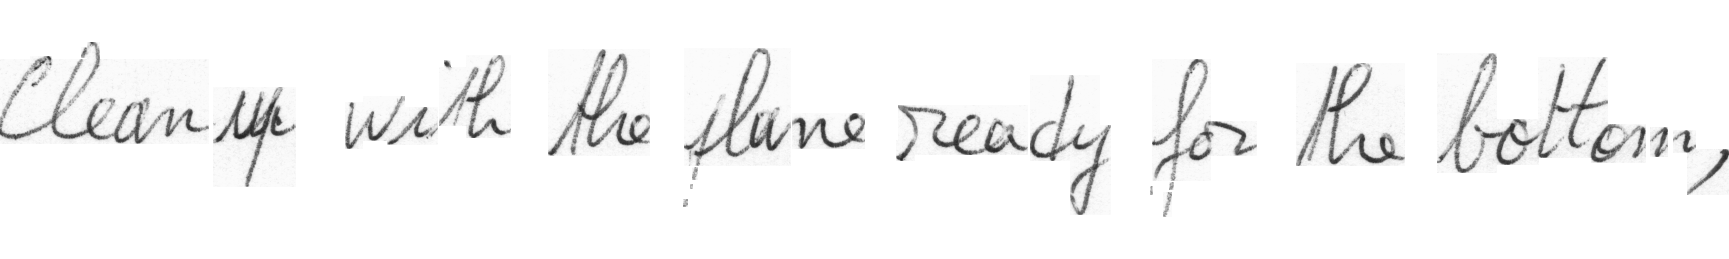 Clean up with the plane ready for the bottom,